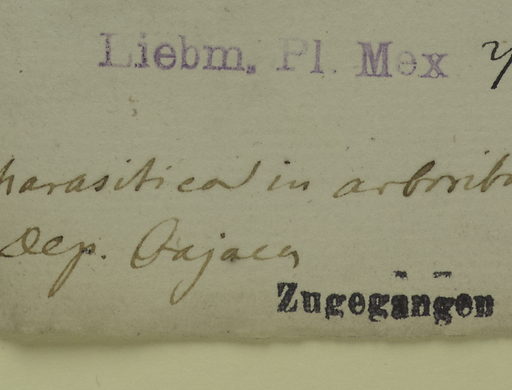 Liebm. Pl. Mex
parasitica in arboribu
Dep. Oajaca
Zugegangen